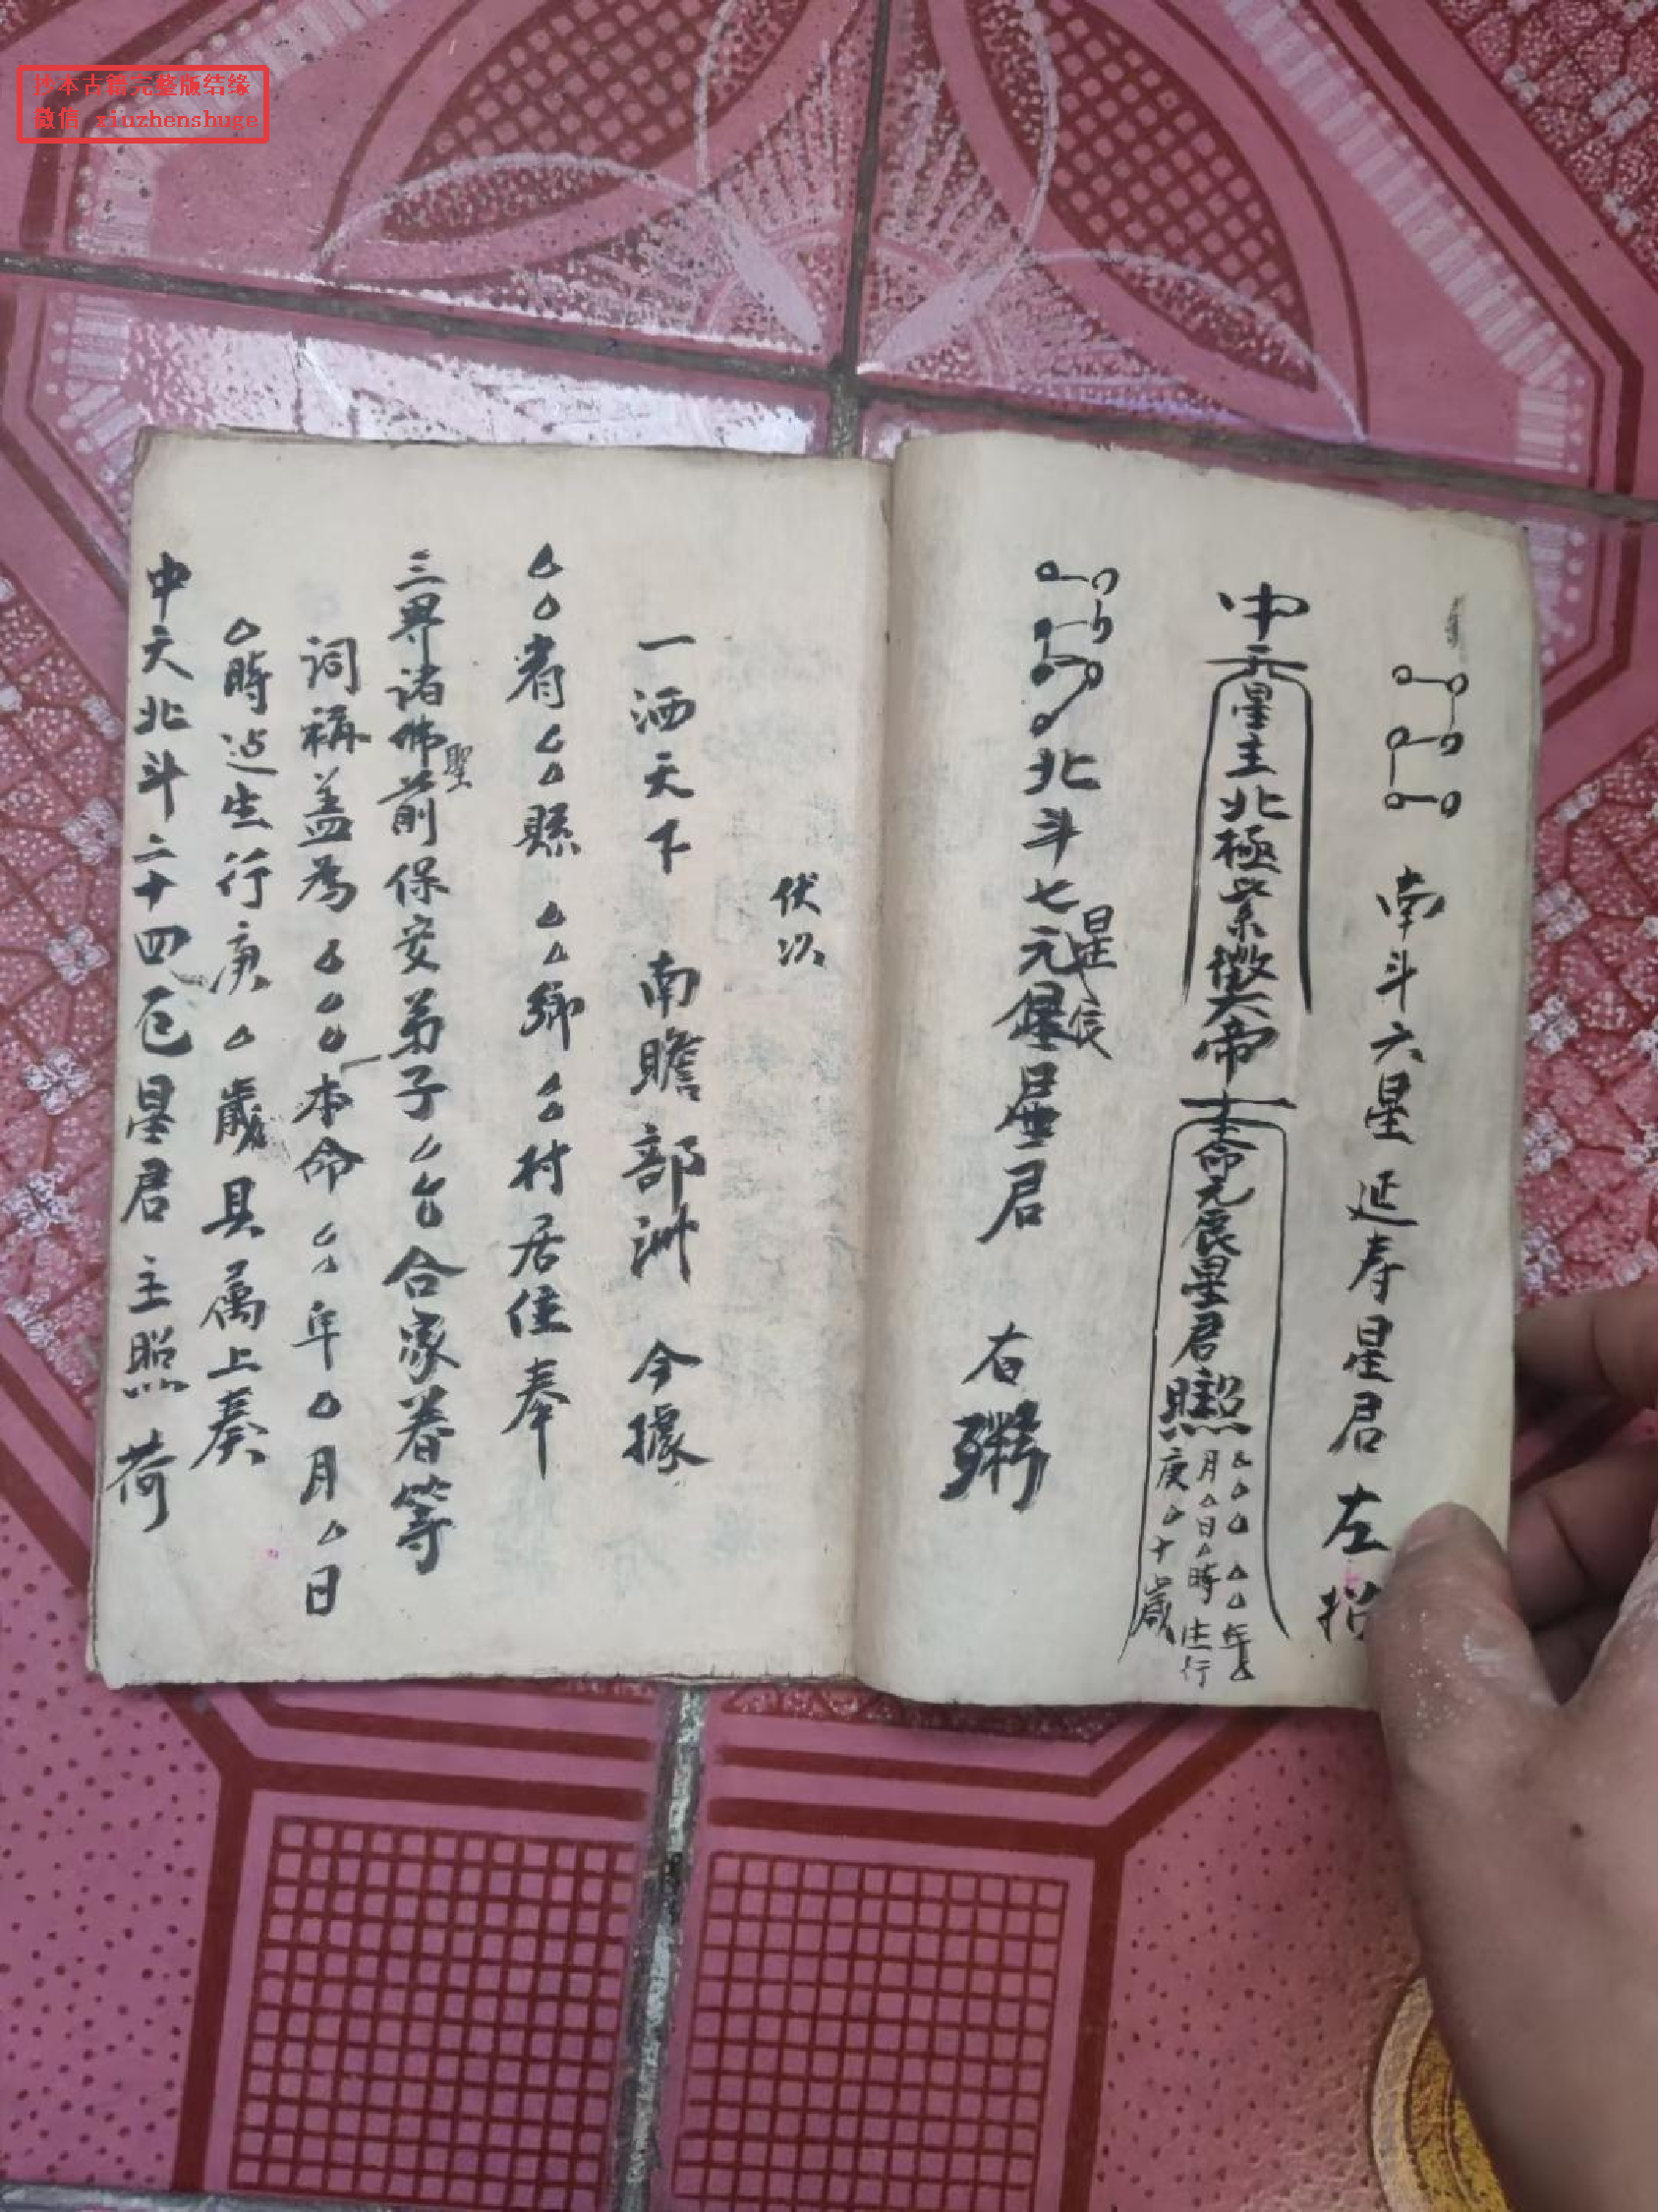 抄本古籍完整版结缘
微信 xiuzhenshuge
南斗六星延寿星君 左
中天星主北極紫微大帝
本命元辰星君照
△△△△△年△
月△日△時生行
庚△十歲
北斗七元星君 右
伏以
一洒天下 南瞻部洲 今據
△△省△△縣△△鄉△△村居住奉
三界諸佛聖前保安弟子△△合家眷等
詞稱盖為△△△本命△△年△月△日
△時 生行庚△歲具属上奏
中天北斗二十四 星君主照 荷